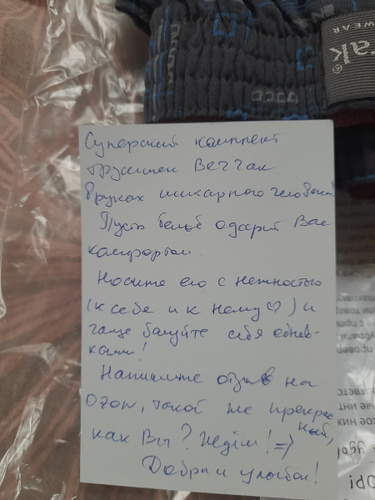 rak®
WEAR
Суперский комплект
трусишек Веттак
в руках шикарного человека
Пусть бельё одарит Вас
комфортом.
Носите его с нежностью
(к себе и к нему ♡) и
чаще балуйте себя обнов-
ками!
Напишите отзыв на
Ozon, такой же прекрас
ный,
как Вы? Ждём! =>
Добра и улыбок!